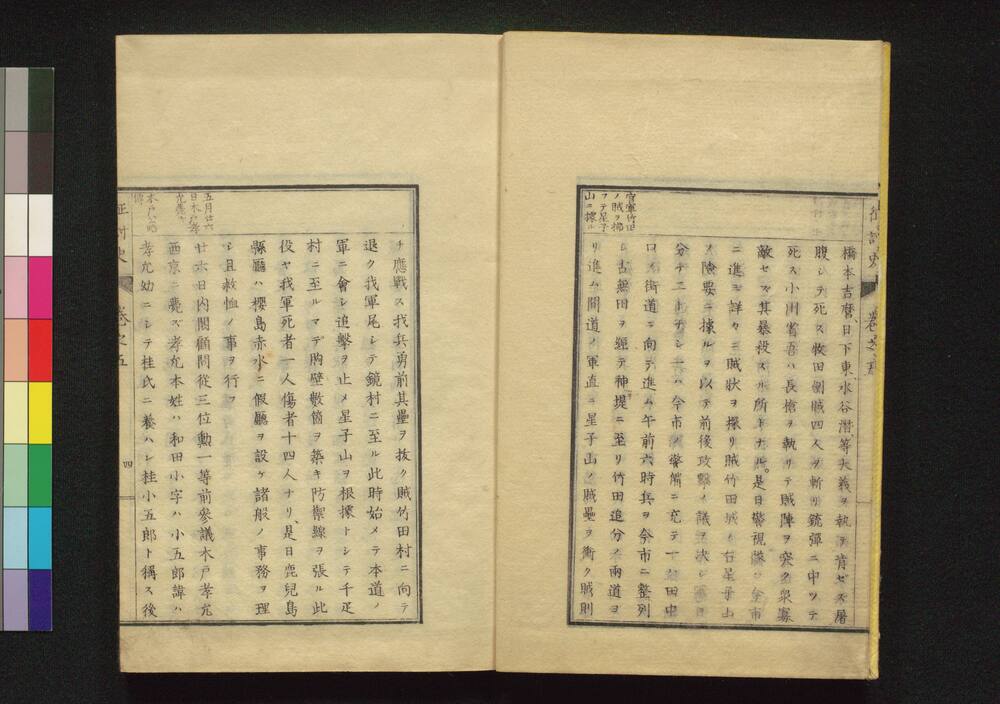 橋本吉麿、日下東、水谷潛等大義ヲ執テ肯ゼズ屠
腹シテ死ス牧田側賊四人ヲ斬リ銃彈ニ中ツテ
死ス小川省吾ハ長槍ヲ執リテ賊陣ヲ突ク衆寡
敵セズ其暴殺スル所トナル。是日警視隊ハ今市
ニ進ミ詳カニ賊狀ヲ探リ賊竹田城ト右星子山
ノ險要ニ據ルヲ以テ前後攻擊ノ議ヲ決シ
分テ二トナシ一ハ今市ノ警備ニ充テ十
口ノ街道ニ向テ進ム午前六時兵ヲ今市ニ整列
シ古無田ヲ經テ神堤ニ至リ竹田追分ノ兩道ヨ
リ進ム間道ノ軍直ニ星子山ノ賊壘ヲ衝ク賊則
官軍竹田
ノ賊ヲ掃
フテ星子
山ニ據ル
チ應戰ス我兵勇前其壘ヲ抜ク賊竹田村ニ向テ
退ク我軍尾シテ鏡村ニ至ル此時始メテ本道ノ
軍ニ會シ追擊ヲ止メ星子山ヲ根據トシテ千疋
村ニ至ルマデ胸壁數箇ヲ築キ防禦線ヲ張ル此
役ヤ我軍死者一人傷者十四人ナリ、是日鹿兒島
縣廳ハ櫻島赤水ニ假廳ヲ設ケ諸般ノ事務ヲ理
シ且救恤ノ事ヲ行フ
廿六日內閣顧問從三位勳一等前參議木戸孝允
西京ニ薨ズ孝允本姓ハ和田小字ハ小五郎諱ハ
孝允幼ニシテ桂氏ニ養ハレ桂小五郎ト稱ス後
五月廿六
日木戸孝
允薨ス
木戸ノ略
傳
征討史
卷之五
四